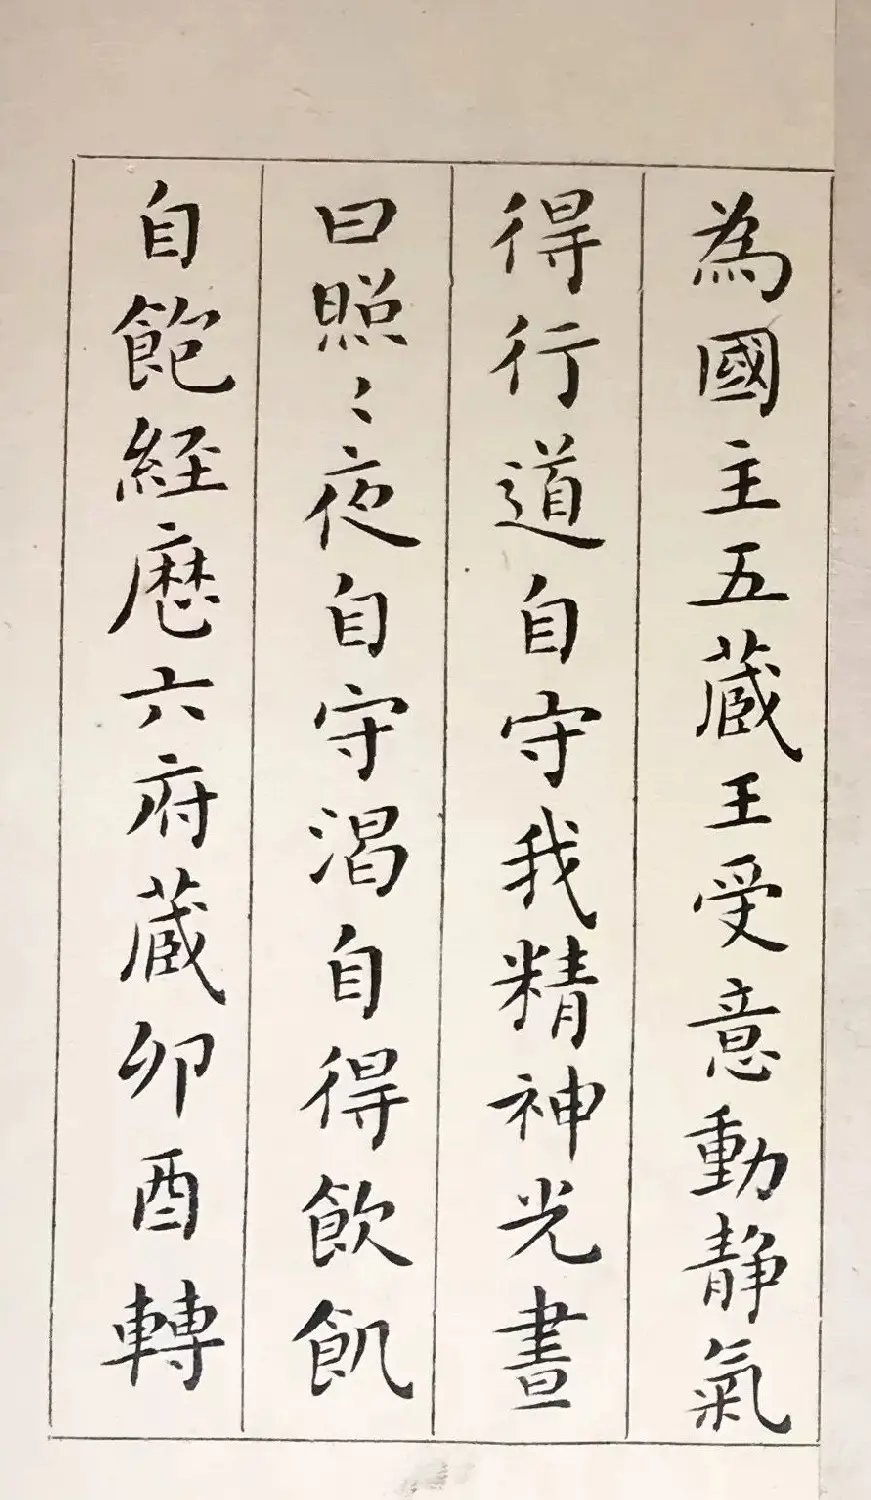 為國主五蔵王受意動静氣
得行道自守我精神光晝
日照〻夜自守渴自得飲飢
自飽經歷六府蔵卯酉轉